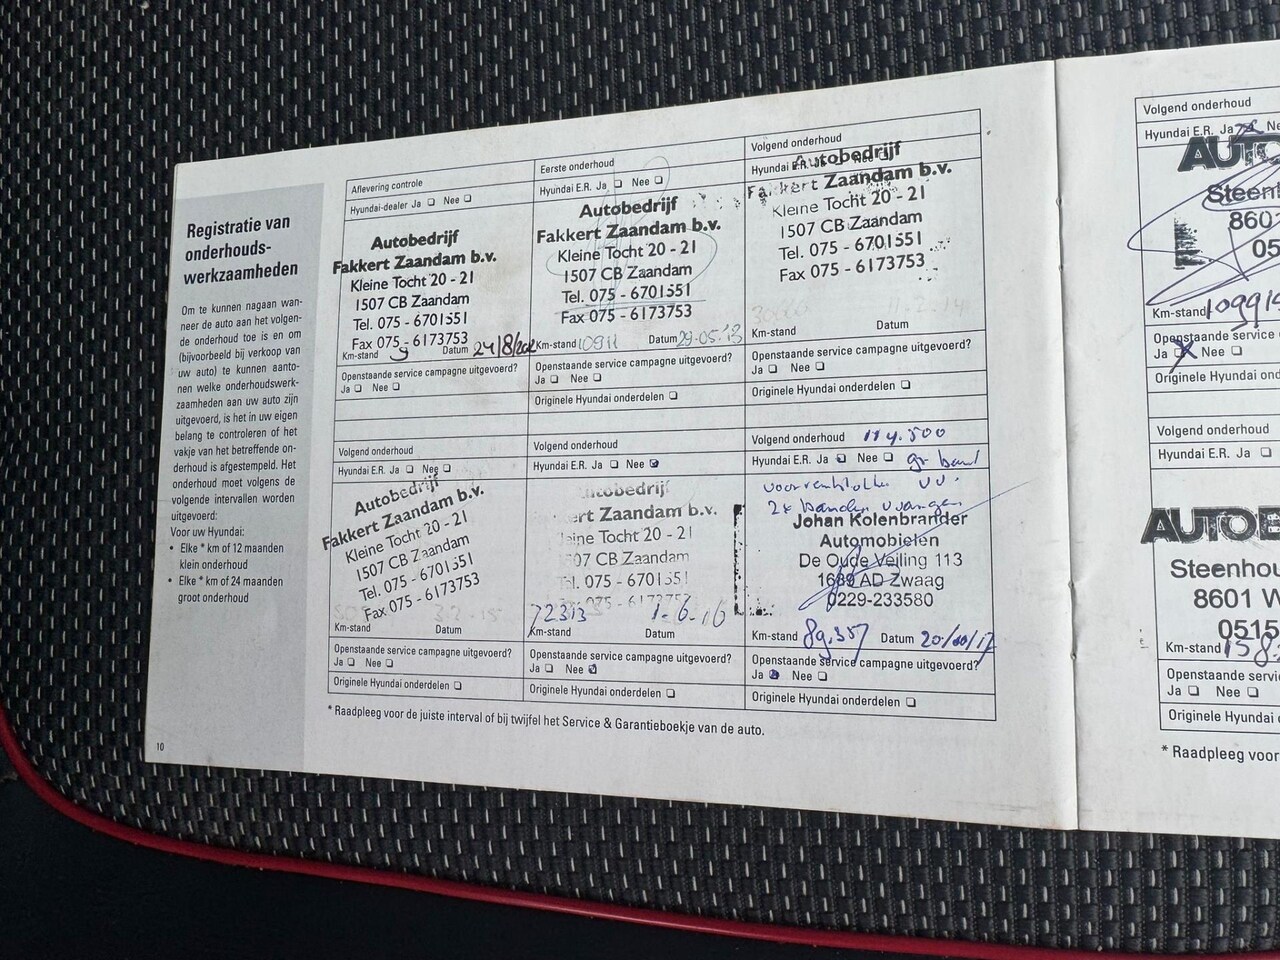 Registratie van
onderhouds-
werkzaamheden
Om te kunnen nagaan wan-
neer de auto aan het volgen-
de onderhoud toe is en om
(bijvoorbeeld bij verkoop van
uw auto) te kunnen aanto-
nen welke onderhoudswerk-
zaamheden aan uw auto zijn
uitgevoerd, is het in uw eigen
belang te controleren of het
vakje van het betreffende on-
derhoud is afgestempeld. Het
onderhoud moet volgens de
volgende intervallen worden
uitgevoerd:
Voor uw Hyundai:
• Elke * km of 12 maanden
klein onderhoud
• Elke * km of 24 maanden
groot onderhoud
10
Aflevering controle
Hyundai-dealer Ja ❏ Nee ❏
Autobedrijf
Fakkert Zaandam b.v.
Kleine Tocht 20 - 21
1507 CB Zaandam
Tel. 075 - 6701551
Fax 075 - 6173753
Km-stand Datum
Openstaande service campagne uitgevoerd?
Ja ❏ Nee ❏
Eerste onderhoud
Hyundai E.R. Ja ❏ Nee ❏
Autobedrijf
Fakkert Zaandam b.v.
Kleine Tocht 20 - 21
1507 CB Zaandam
Tel. 075 - 6701551
Fax 075 - 6173753
Km-stand Datum 29-05-13
Openstaande service campagne uitgevoerd?
Ja ❏ Nee ❏
Originele Hyundai onderdelen ❏
Volgend onderhoud
Hyundai E.R. Ja ❏ Nee ❏
Autobedrijf
Fakkert Zaandam b.v.
Kleine Tocht 20 - 21
1507 CB Zaandam
Tel. 075 - 6701551
Fax 075 - 6173753
Km-stand Datum
Openstaande service campagne uitgevoerd?
Ja ❏ Nee ❏
Originele Hyundai onderdelen ❏
Volgend onderhoud
Hyundai E.R. Ja ❏ Nee ❏
Autobedrijf
Fakkert Zaandam b.v.
Kleine Tocht 20 - 21
1507 CB Zaandam
Tel. 075 - 6701551
Fax 075 - 6173753
3-2-15
Km-stand Datum
Openstaande service campagne uitgevoerd?
Ja ❏ Nee ❏
Originele Hyundai onderdelen ❏
Volgend onderhoud
Hyundai E.R. Ja ❏ Nee ❏
Zaandam b.v.
Kleine Tocht 20 - 21
CB Zaandam
075 - 6701551
72313 1-6-16
Km-stand Datum
Openstaande service campagne uitgevoerd?
Ja ❏ Nee ❏
Originele Hyundai onderdelen ❏
Volgend onderhoud 114.500
Hyundai E.R. Ja ❏ Nee ❏
Johan Kolenbrander
Automobielen
De Oude Veiling 113
1689 AD Zwaag
0229-233580
Km-stand 89.357 Datum 20/10/17
Openstaande service campagne uitgevoerd?
Ja ❏ Nee ❏
Originele Hyundai onderdelen ❏
* Raadpleeg voor de juiste interval of bij twijfel het Service & Garantieboekje van de auto.
Volgend onderhoud
Hyundai E.R. Ja
AUTO
Steen
860
05
Km-stand
Openstaande service
Ja ❏ Nee ❏
Originele Hyundai
Volgend onderhoud
Hyundai E.R. Ja ❏
AUTOB
Steenhou
8601 W
0515
Km-stand
Openstaande servi
Ja ❏ Nee ❏
Originele Hyundai
* Raadpleeg voor